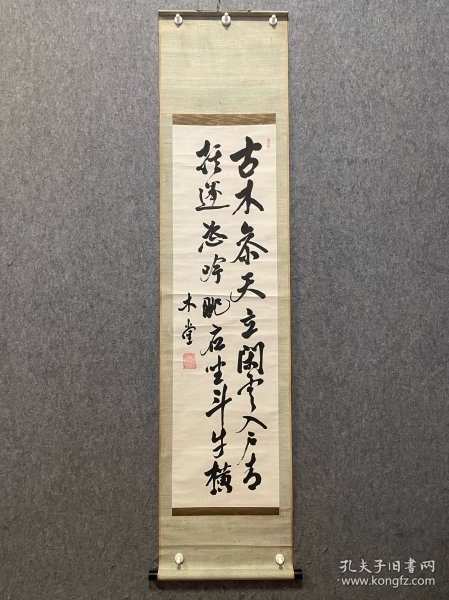 古木参天立閑雲入戸青
推運恣吟眺石坐斗牛横
木堂
孔夫子旧书网
www.kongfz.com